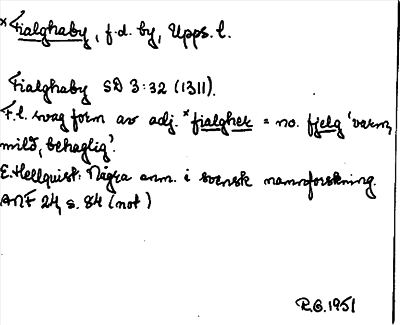 *Fialghaby, f.d. by, Upps. l.
Fialghaby SD 3:32 (1311).
F.l. svag form av adj. *fjalgher = no. fjelg 'varm,
mild, behaglig'.
E. Hellquist: Några anm. i svensk namnforskning.
ANF 24, s. 84 (not)
R.O. 1951